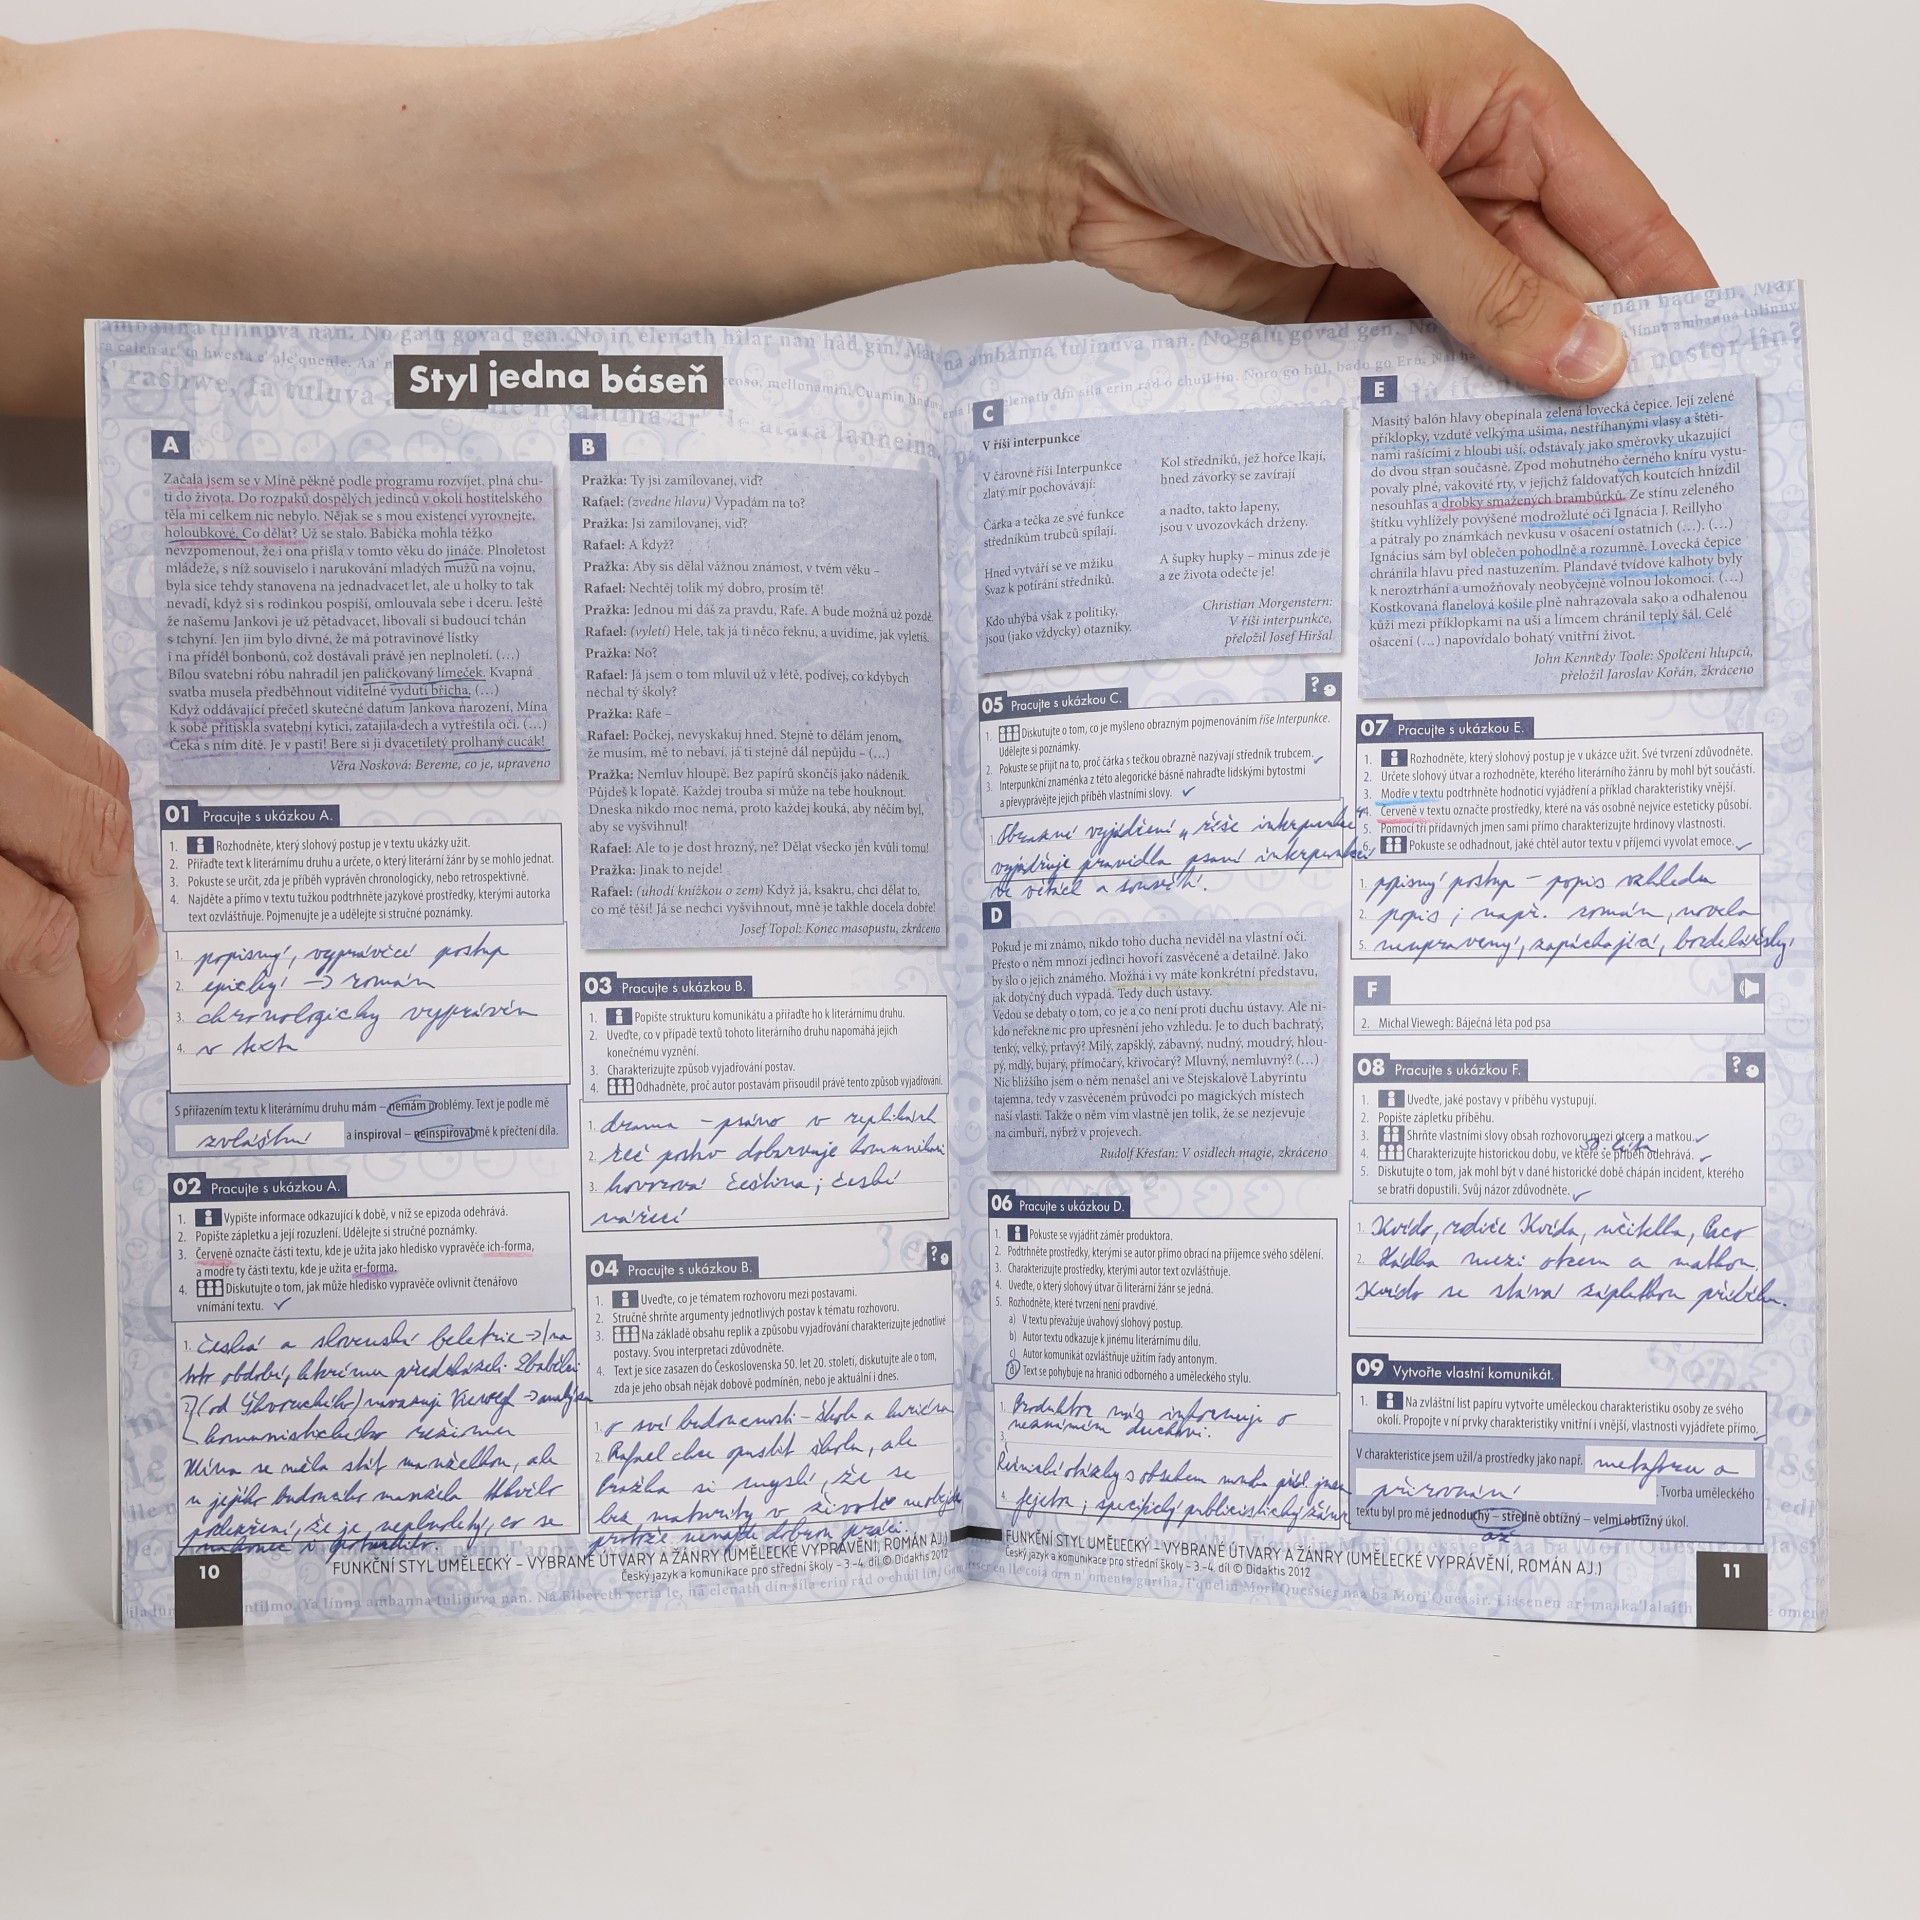 Styl jedna báseň
A
Začala jsem se v Míně pěkně podle programu rozvíjet, plná chu-
ti do života. Do rozpaků dospělých jedinců v okolí hostitelského
těla mi celkem nic nebylo. Nějak se s mou existencí vyrovnejte,
holoubkové. Co dělat? Už se stalo. Babička mohla těžko
nevzpomenout, že i ona přišla v tomto věku do jináče. Plnoletost
mládeže, s níž souviselo i narukování mladých mužů na vojnu,
byla sice tehdy stanovena na jednadvacet let, ale u holky to tak
nevadí, když si s rodinkou pospíší, omlouvala sebe i dceru. Ještě
že našemu Jankovi je už pětadvacet, libovali si budoucí tchán
s tchyní. Jen jim bylo divné, že má potravinové lístky
i na příděl bonbonů, což dostávali právě jen neplnoletí. (…)
Bílou svatební róbu nahradil jen paličkovaný límeček. Kvapná
svatba musela předběhnout viditelné vydutí břicha. (…)
Když oddávající přečetl skutečné datum Jankova narození, Mína
k sobě přitiskla svatební kytici, zatajila dech a vytřeštila oči. (…)
Čeká s ním dítě. Je v pasti! Bere si ji dvacetiletý prolhaný cucák!
Věra Nosková: Bereme, co je, upraveno
01 Pracujte s ukázkou A.
1. Rozhodněte, který slohový postup je v textu ukázky užit.
2. Přiřaďte text k literárnímu druhu a určete, o který literární žánr by se mohlo jednat.
3. Pokuste se určit, zda je příběh vyprávěn chronologicky, nebo retrospektivně.
4. Najděte a přímo v textu tužkou podtrhněte jazykové prostředky, kterými autorka
text ozvláštňuje. Pojmenujte je a udělejte si stručné poznámky.
1. popisný, vyprávěcí postup
2. epický → román
3. chronologicky vyprávěn
4. v textu
S přiřazením textu k literárnímu druhu mám – nemám problémy. Text je podle mě
zvláštní a inspiroval – neinspiroval mě k přečtení díla.
02 Pracujte s ukázkou A.
1. Vypište informace odkazující k době, v níž se epizoda odehrává.
2. Popište zápletku a její rozuzlení. Udělejte si stručné poznámky.
3. Červeně označte části textu, kde je užita jako hledisko vypravěče ich-forma,
a modře ty části textu, kde je užita er-forma.
4. Diskutujte o tom, jak může hledisko vypravěče ovlivnit čtenářovo
vnímání textu. ✓
1. Česká a slovenská beletrie → na
toto období, kterému předcházeli Zbabělci
(od Škvoreckého) navazuje Viewegh →
komunistického režimu
Mína se měla stát manželkou, ale
u jejího budoucího manžela
podezření, že je neplnoletý, co se
nakonec i potvrdilo.
B
Pražka: Ty jsi zamilovanej, viď?
Rafael: (zvedne hlavu) Vypadám na to?
Pražka: Jsi zamilovanej, viď?
Rafael: A když?
Pražka: Aby sis dělal vážnou známost, v tvém věku –
Rafael: Nechtěj tolik mý dobro, prosím tě!
Pražka: Jednou mi dáš za pravdu, Rafe. A bude možná už pozdě.
Rafael: (vyletí) Hele, tak já ti něco řeknu, a uvidíme, jak vyletíš.
Pražka: No?
Rafael: Já jsem o tom mluvil už v létě, podívej, co kdybych
nechal tý školy?
Pražka: Rafe –
Rafael: Počkej, nevyskakuj hned. Stejně to dělám jenom,
že musím, mě to nebaví, já ti stejně dál nepůjdu – (…)
Pražka: Nemluv hloupě. Bez papírů skončíš jako nádeník.
Půjdeš k lopatě. Každej trouba si může na tebe houknout.
Dneska nikdo moc nemá, proto každej kouká, aby něčím byl,
aby se vyšvihnul!
Rafael: Ale to je dost hrozný, ne? Dělat všecko jen kvůli tomu!
Pražka: Jinak to nejde!
Rafael: (uhodí knížkou o zem) Když já, ksakru, chci dělat to,
co mě těší! Já se nechci vyšvihnout, mně je takhle docela dobře!
Josef Topol: Konec masopustu, zkráceno
03 Pracujte s ukázkou B.
1. Popište strukturu komunikátu a přiřaďte ho k literárnímu druhu.
2. Uveďte, co v případě textů tohoto literárního druhu napomáhá jejich
konečnému vyznění.
3. Charakterizujte způsob vyjadřování postav.
4. Odhadněte, proč autor postavám přisoudil právě tento způsob vyjadřování.
1. drama – psáno v replikách
2. řeč postav dotvrzuje komunikaci
3. hovorová čeština, české
nářečí
04 Pracujte s ukázkou B.
1. Uveďte, co je tématem rozhovoru mezi postavami.
2. Stručně shrňte argumenty jednotlivých postav k tématu rozhovoru.
3. Na základě obsahu replik a způsobu vyjadřování charakterizujte jednotlivé
postavy. Svou interpretaci zdůvodněte.
4. Text je sice zasazen do Československa 50. let 20. století, diskutujte ale o tom,
zda je jeho obsah nějak dobově podmíněn, nebo je aktuální i dnes.
1. o své budoucnosti – škola a kariéra
2. Rafael chce opustit školu, ale
Pražka si myslí, že se
bez maturity v životě neobejde
protože nenajde dobrou práci.
10
FUNKČNÍ STYL UMĚLECKÝ – VYBRANÉ ÚTVARY A ŽÁNRY (UMĚLECKÉ VYPRÁVĚNÍ, ROMÁN AJ.)
Český jazyk a komunikace pro střední školy – 3.–4. díl © Didaktis 2012
C
V říši interpunkce
V čarovné říši Interpunkce
zlatý mír pochovávají:
Čárka a tečka ze své funkce
středníkům trubců spílají.
Hned vytváří se ve mžiku
Svaz k potírání středníků.
Kdo uhýbá však z politiky,
jsou (jako vždycky) otazníky.
Kol středníků, jež hořce lkají,
hned závorky se zavírají
a nadto, takto lapeny,
jsou v uvozovkách drženy.
A šupky hupky – minus zde je
a ze života odečte je!
Christian Morgenstern:
V říši interpunkce,
přeložil Josef Hiršal
05 Pracujte s ukázkou C.
1. Diskutujte o tom, co je myšleno obrazným pojmenováním říše Interpunkce.
Udělejte si poznámky.
2. Pokuste se přijít na to, proč čárka s tečkou obrazně nazývají středník trubcem. ✓
3. Interpunkční znaménka z této alegorické básně nahraďte lidskými bytostmi
a převyprávějte jejich příběh vlastními slovy. ✓
1. Obrazné vyjádření „říše interpunkce“
vyjadřuje pravidla psaní interpunkce
ve větách a souvětí.
D
Pokud je mi známo, nikdo toho ducha neviděl na vlastní oči.
Přesto o něm mnozí jedinci hovoří zasvěceně a detailně. Jako
by šlo o jejich známého. Možná i vy máte konkrétní představu,
jak dotyčný duch vypadá. Tedy duch ústavy.
Vedou se debaty o tom, co je a co není proti duchu ústavy. Ale ni-
kdo neřekne nic pro upřesnění jeho vzhledu. Je to duch bachratý,
tenký, velký, prťavý? Milý, zapšklý, zábavný, nudný, moudrý, hlou-
pý, mdlý, bujarý, přímočarý, křivočarý? Mluvný, nemluvný? (…)
Nic bližšího jsem o něm nenašel ani ve Stejskalově Labyrintu
tajemna, tedy v zasvěceném průvodci po magických místech
naší vlasti. Takže o něm vím vlastně jen tolik, že se nezjevuje
na cimbuří, nýbrž v projevech.
Rudolf Křesťan: V osidlech magie, zkráceno
06 Pracujte s ukázkou D.
1. Pokuste se vyjádřit záměr produktora.
2. Podtrhněte prostředky, kterými se autor přímo obrací na příjemce svého sdělení.
3. Charakterizujte prostředky, kterými autor text ozvláštňuje.
4. Uveďte, o který slohový útvar či literární žánr se jedná.
5. Rozhodněte, které tvrzení není pravdivé.
a) V textu převažuje úvahový slohový postup.
b) Autor textu odkazuje k jinému literárnímu dílu.
c) Autor komunikát ozvláštňuje užitím řady antonym.
d) Text se pohybuje na hranici odborného a uměleckého stylu.
1. Produktor nás informuje o
neznámém duchovi.
3.
Řečnické otázky s obsahem mnoha příd. jmen
4. fejeton, specifický publicistický žánr
E
Masitý balón hlavy obepínala zelená lovecká čepice. Její zelené
příklopky, vzduté velkýma ušima, nestříhanými vlasy a štěti-
nami rašícími z hloubi uší, odstávaly jako směrovky ukazující
do dvou stran současně. Zpod mohutného černého kníru vystu-
povaly plné, vakovité rty, v jejichž faldovatých koutcích hnízdil
nesouhlas a drobky smažených brambůrků. Ze stínu zeleného
štítku vyhlížely povýšené modrožluté oči Ignácia J. Reillyho
a pátraly po známkách nevkusu v ošacení ostatních (…). (…)
Ignácius sám byl oblečen pohodlně a rozumně. Lovecká čepice
chránila hlavu před nastuzením. Plandavé tvídové kalhoty byly
k neroztrhání a umožňovaly neobyčejně volnou lokomoci. (…)
Kostkovaná flanelová košile plně nahrazovala sako a odhalenou
kůži mezi příklopkami na uši a límcem chránil teplý šál. Celé
ošacení (…) napovídalo bohatý vnitřní život.
John Kennedy Toole: Spolčení hlupců,
přeložil Jaroslav Kořán, zkráceno
07 Pracujte s ukázkou E.
1. Rozhodněte, který slohový postup je v ukázce užit. Své tvrzení zdůvodněte.
2. Určete slohový útvar a rozhodněte, kterého literárního žánru by mohl být součástí.
3. Modře v textu podtrhněte hodnotící vyjádření a příklad charakteristiky vnější.
4. Červeně v textu označte prostředky, které na vás osobně nejvíce esteticky působí.
5. Pomocí tří přídavných jmen sami přímo charakterizujte hrdinovy vlastnosti.
6. Pokuste se odhadnout, jaké chtěl autor textu v příjemci vyvolat emoce. ✓
1. popisný postup – popis vzhledu
2. popis; např. román, novela
5. neupravený, zapáchající, bordelářský
F
2. Michal Viewegh: Báječná léta pod psa
08 Pracujte s ukázkou F.
1. Uveďte, jaké postavy v příběhu vystupují.
2. Popište zápletku příběhu.
3. Shrňte vlastními slovy obsah rozhovoru mezi otcem a matkou. ✓
4. Charakterizujte historickou dobu, ve které se příběh odehrává. ✓
5. Diskutujte o tom, jak mohl být v dané historické době chápán incident, kterého
se bratři dopustili. Svůj názor zdůvodněte. ✓
1. Kvido, rodiče Kvida, učitelka, Paco
2. Hádka mezi otcem a matkou.
Kvido se stává zápletkou příběhu.
09 Vytvořte vlastní komunikát.
1. Na zvláštní list papíru vytvořte uměleckou charakteristiku osoby ze svého
okolí. Propojte v ní prvky charakteristiky vnitřní i vnější, vlastnosti vyjádřete přímo.
V charakteristice jsem užil/a prostředky jako např. metaforu a
přirovnání. Tvorba uměleckého
textu byl pro mě jednoduchý – středně obtížný – velmi obtížný úkol.
až
FUNKČNÍ STYL UMĚLECKÝ – VYBRANÉ ÚTVARY A ŽÁNRY (UMĚLECKÉ VYPRÁVĚNÍ, ROMÁN AJ.)
Český jazyk a komunikace pro střední školy – 3.–4. díl © Didaktis 2012
11